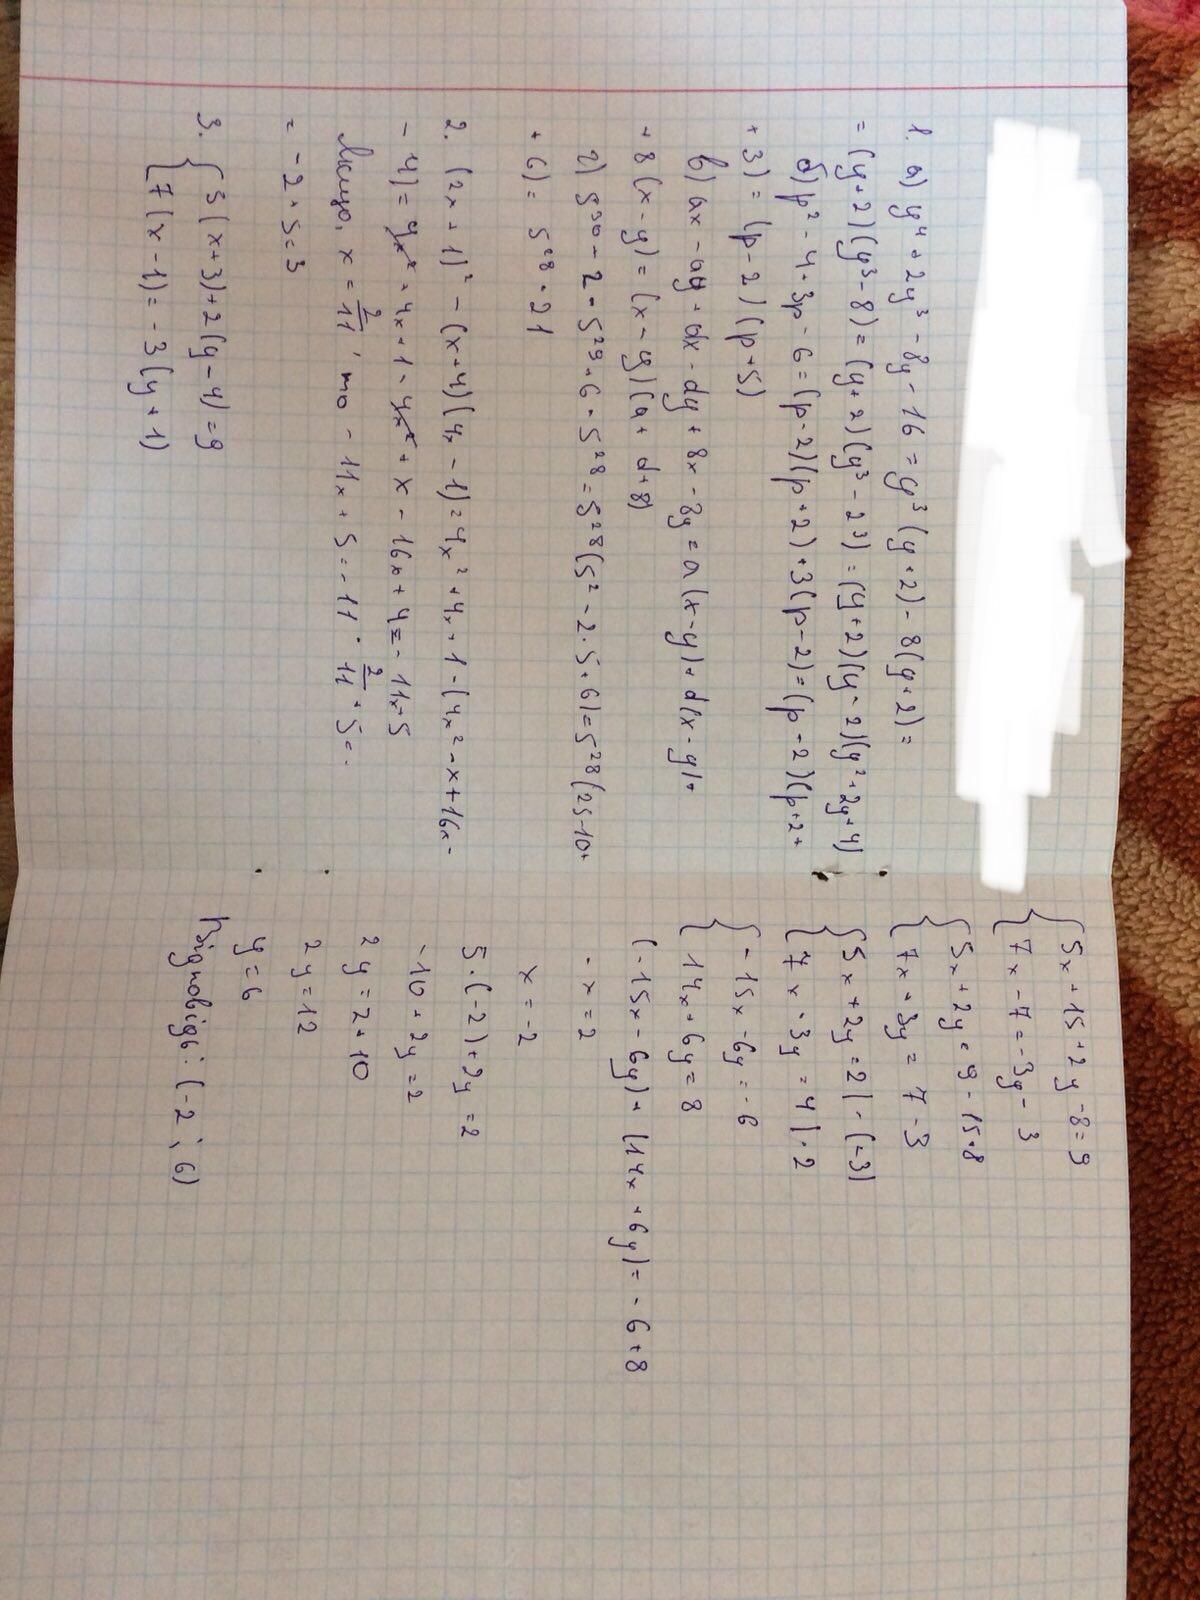 1. а) y⁴ + 2y³ - 8y - 16 = y³(y + 2) - 8(y + 2) =
= (y + 2)(y³ - 8) = (y + 2)(y³ - 2³) = (y + 2)(y - 2)(y² + 2y + 4)
б) p² - 4 + 3p - 6 = (p - 2)(p + 2) + 3(p - 2) = (p - 2)(p + 2 +
+ 3) = (p - 2)(p + 5)
в) ax - ay + dx - dy + 8x - 8y = a(x - y) + d(x - y) +
+ 8(x - y) = (x - y)(a + d + 8)
г) 5³⁰ - 2 · 5²⁹ + 6 · 5²⁸ = 5²⁸(5² - 2 · 5 + 6) = 5²⁸(25 - 10 +
+ 6) = 5²⁸ · 21
2. (2x + 1)² - (x + 4)(4x - 1) = 4x² + 4x + 1 - (4x² - x + 16x -
- 4) = 4x² + 4x + 1 - 4x² + x - 16x + 4 = - 11x + 5
Якщо, x = 2/11, то - 11x + 5 = - 11 · 2/11 + 5 =
= - 2 + 5 = 3
3. { 5(x + 3) + 2(y - 4) = 9
{ 7(x - 1) = - 3(y + 1)
{ 5x + 15 + 2y - 8 = 9
{ 7x - 7 = - 3y - 3
{ 5x + 2y = 9 - 15 + 8
{ 7x + 3y = 7 - 3
{ 5x + 2y = 2 | · (-3)
{ 7x + 3y = 4 | · 2
{ - 15x - 6y = - 6
{ 14x + 6y = 8
(- 15x - 6y) + (14x + 6y) = - 6 + 8
- x = 2
x = - 2
5 · (-2) + 2y = 2
- 10 + 2y = 2
2y = 2 + 10
2y = 12
y = 6
Відповідь: (-2 ; 6)